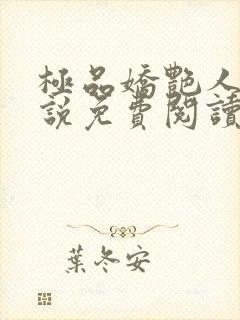 極品嬌艷人
說免費閱讀
葉冬安